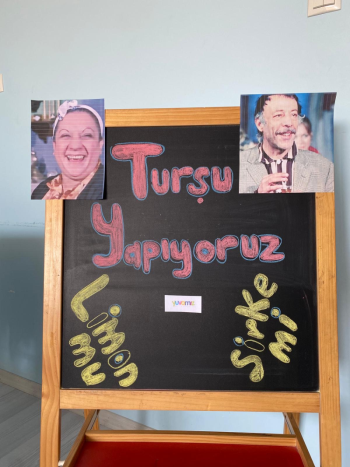 Turşu
Yapıyoruz
Limon
mu
Sirke
mi